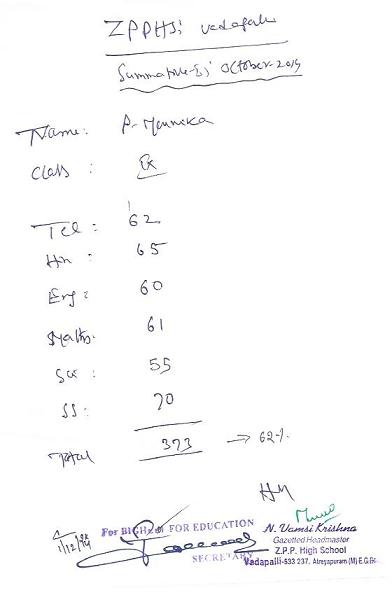 ZPPHS; Vadapalli
Summative-I; October-2014
Name: P. Mounika
Class: IX
Tel: 62
Hin: 65
Eng: 60
Maths: 61
Sci: 55
SS: 70
Total 373 → 62%
HM
1/12/14
For BIG FOR EDUCATION
SECRETARY
N. Vamsi Krishna
Gazetted Headmaster
Z.P.P. High School
Vadapalli-533 237, Atreyapuram (M) E.G.Dt.